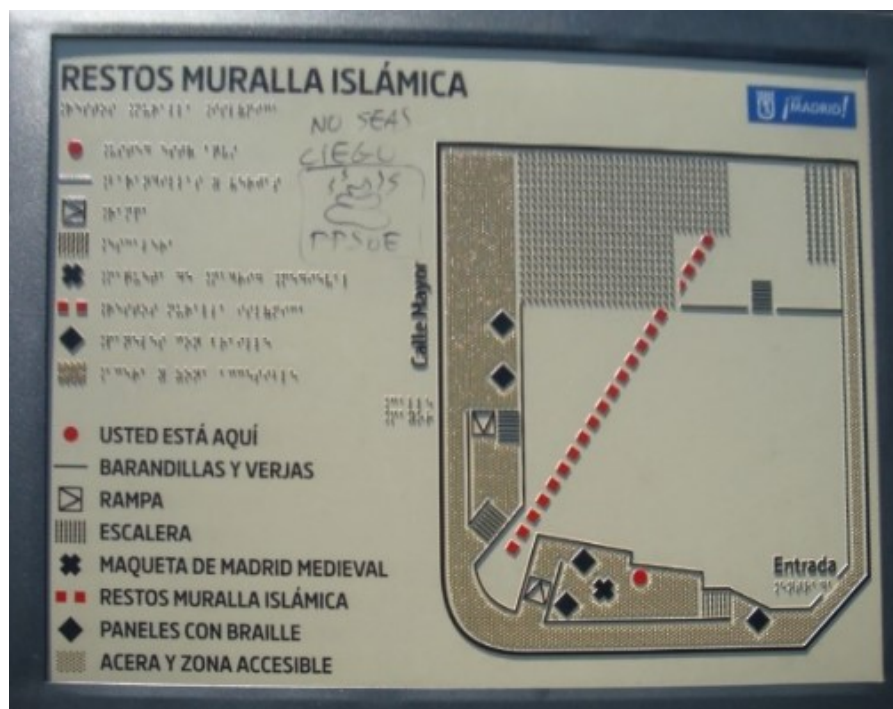 RESTOS MURALLA ISLÁMICA
¡MADRID!
NO SEAS
CIEGO
PPSOE
Calle Mayor
USTED ESTÁ AQUÍ
BARANDILLAS Y VERJAS
RAMPA
ESCALERA
MAQUETA DE MADRID MEDIEVAL
RESTOS MURALLA ISLÁMICA
PANELES CON BRAILLE
ACERA Y ZONA ACCESIBLE
Entrada